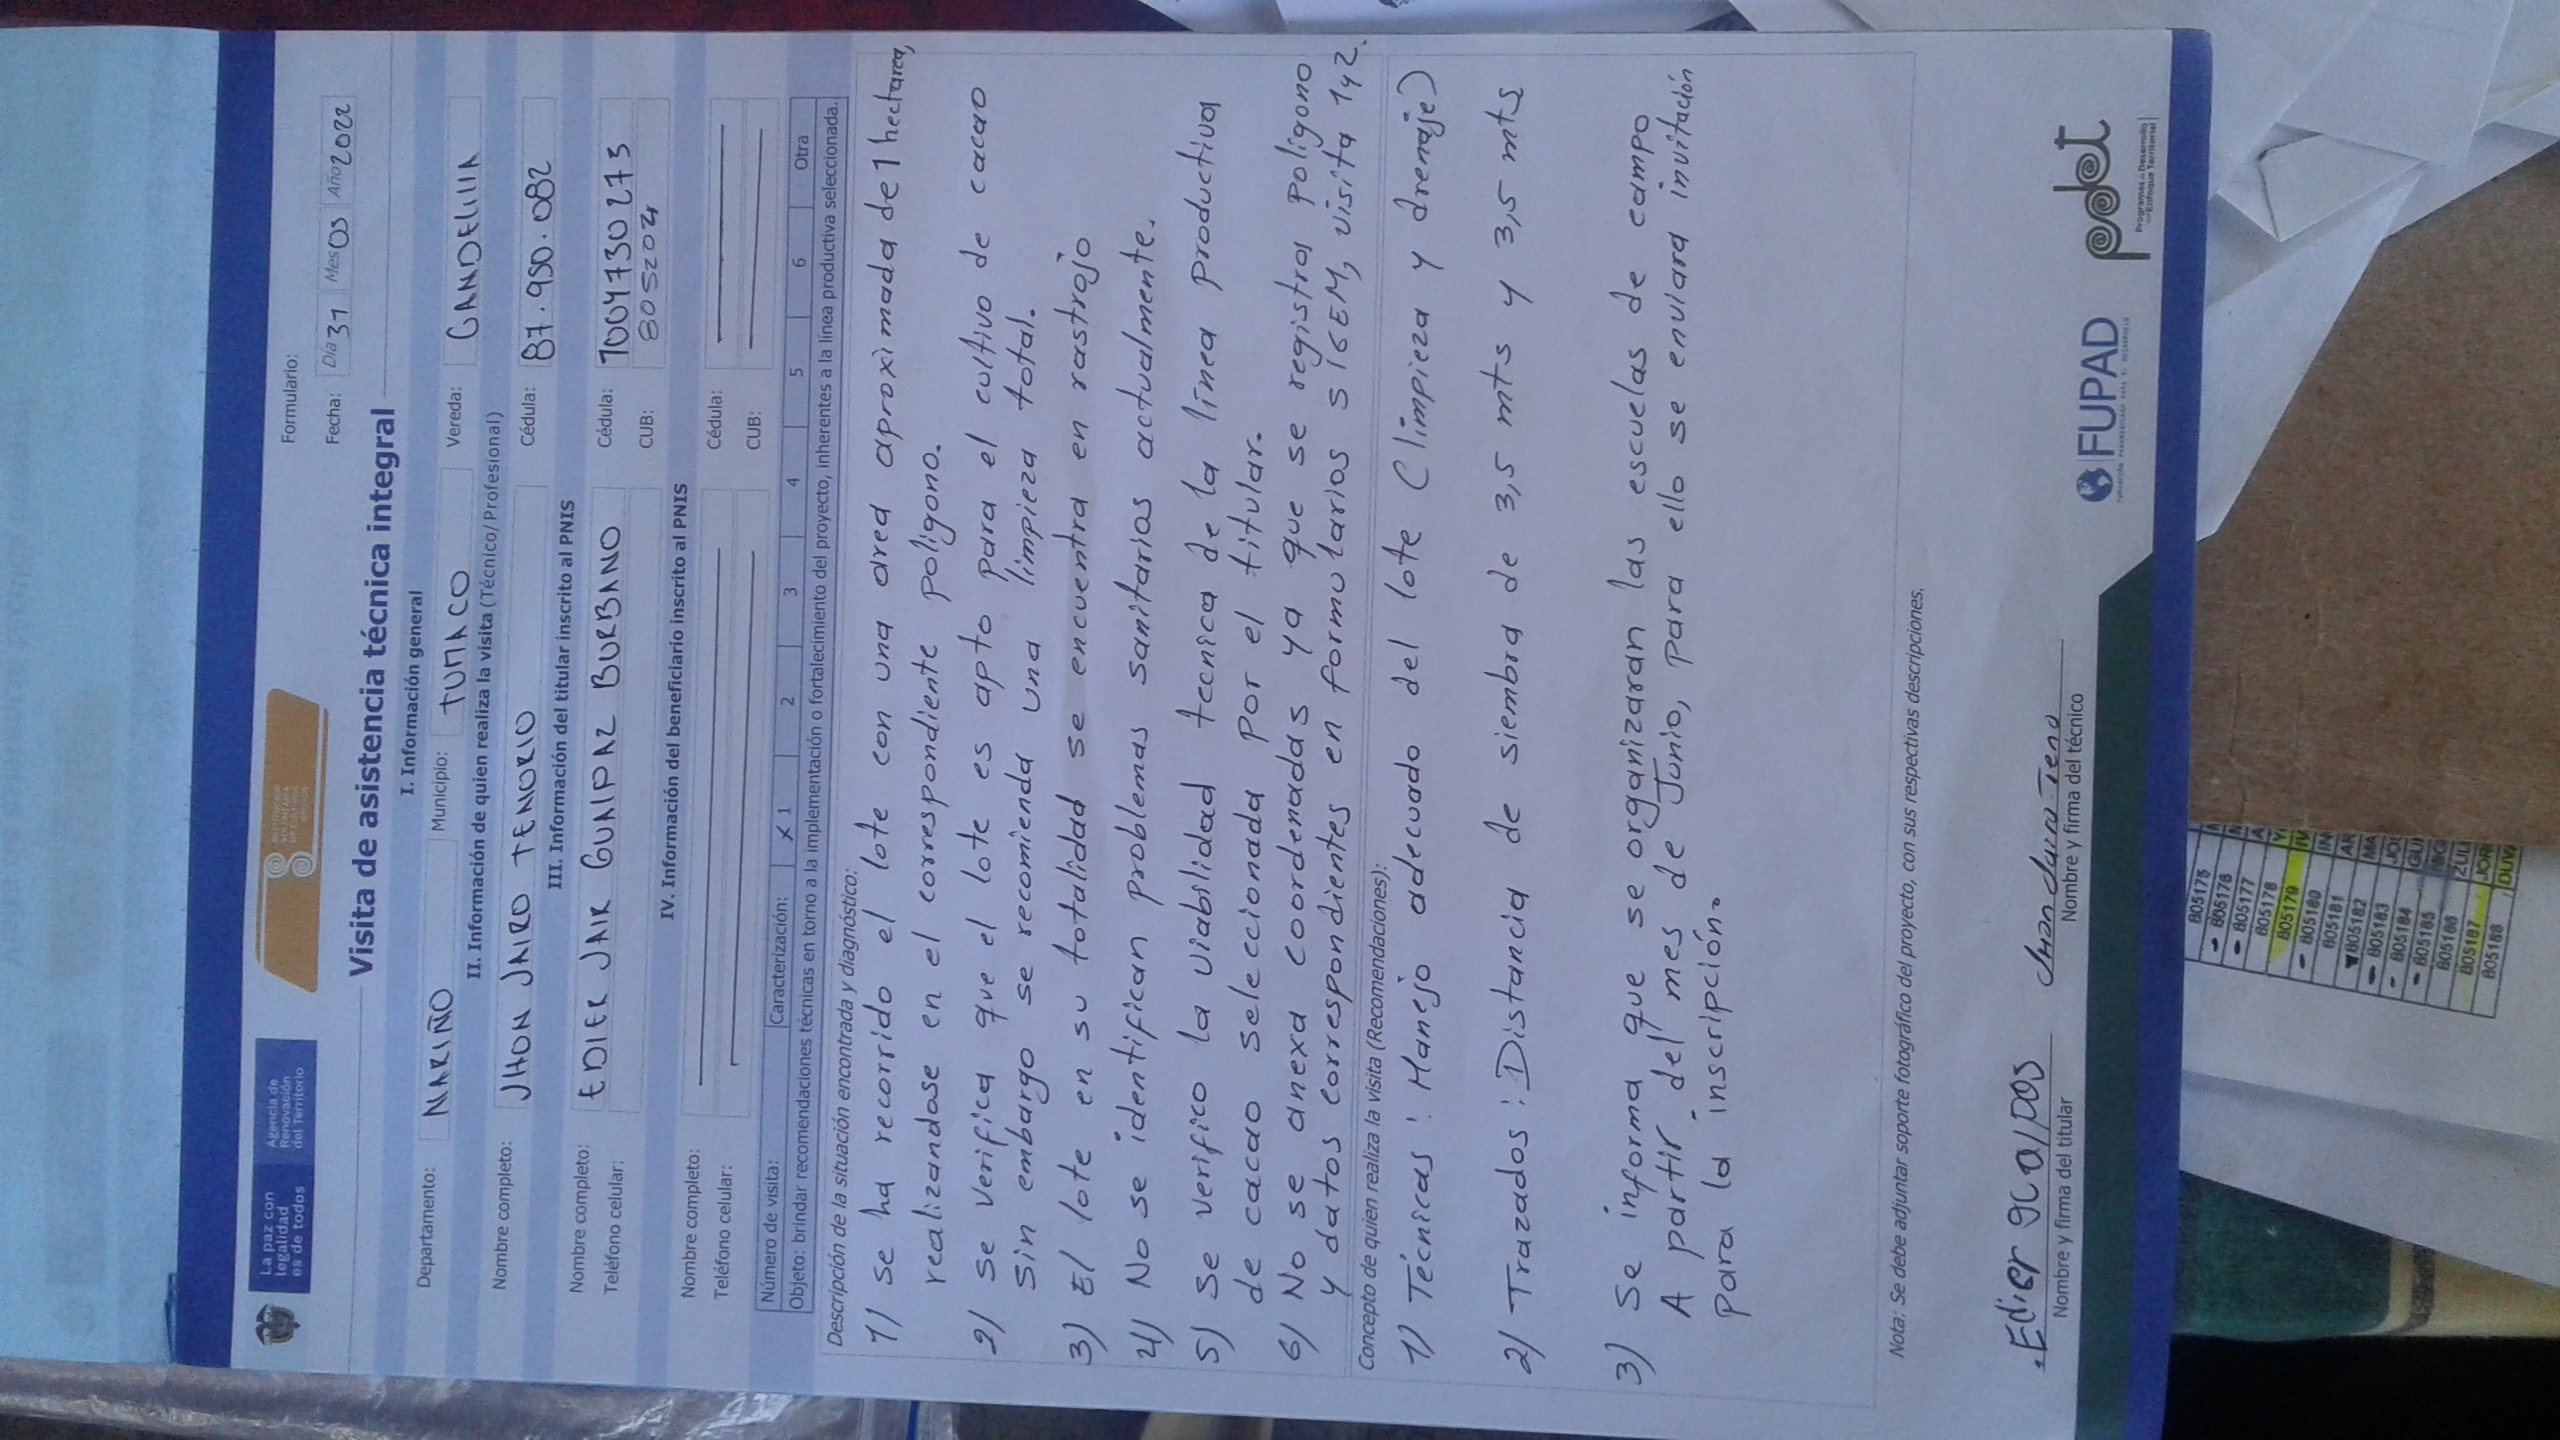 La paz con
legalidad
es de todos
Agencia de
Renovación
del Territorio
Formulario:
Fecha: Día 31 Mes 05 Año 2022
Visita de asistencia técnica integral
I. Información general
Departamento: NARIÑO Municipio: TUMACO Vereda: CANDELILLA
II. Información de quien realiza la visita (Técnico/Profesional)
Nombre completo: JHON JAIRO TENORIO Cédula: 87.950.082
III. Información del titular inscrito al PNIS
Nombre completo: EDIER JAIR GUAIPAZ BURBANO Cédula: 1004730273
Teléfono celular: CUB: 805204
IV. Información del beneficiario inscrito al PNIS
Nombre completo: Cédula:
Teléfono celular: CUB:
Número de visita: Caracterización: X 1 2 3 4 5 6 Otra
Objeto: brindar recomendaciones técnicas en torno a la implementación o fortalecimiento del proyecto, inherentes a la línea productiva seleccionada.
Descripción de la situación encontrada y diagnóstico:
1) se ha recorrido el lote con una area aproximada de 1 hectarea,
realizandose en el correspondiente poligono.
2) se verifica que el lote es apto para el cultivo de cacao
sin embargo se recomienda una limpieza total.
3) El lote en su totalidad se encuentra en rastrojo
4) No se identifican problemas sanitarios actualmente.
5) se verifico la viabilidad tecnica de la linea productiva
de cacao seleccionada por el titular.
6) No se anexa coordenadas ya que se registra poligono
y datos correspondientes en formularios SIGEM, visita 1 y 2.
Concepto de quien realiza la visita (Recomendaciones):
1) Técnicas: Manejo adecuado del lote (limpieza y drenaje)
2) Trazados: Distancia de siembra de 3,5 mts y 3,5 mts
3) Se informa que se organizaran las escuelas de campo
A partir del mes de Junio, para ello se enviara invitación
para la inscripción.
Nota: Se debe adjuntar soporte fotográfico del proyecto, con sus respectivas descripciones.
Edier
Nombre y firma del titular
Nombre y firma del técnico
FUPAD
pdet
Programas de Desarrollo
con Enfoque Territorial
805175
805176
805177
805178
805179
805180
805181
805182
805183
805184
805185
805186
805187
805188